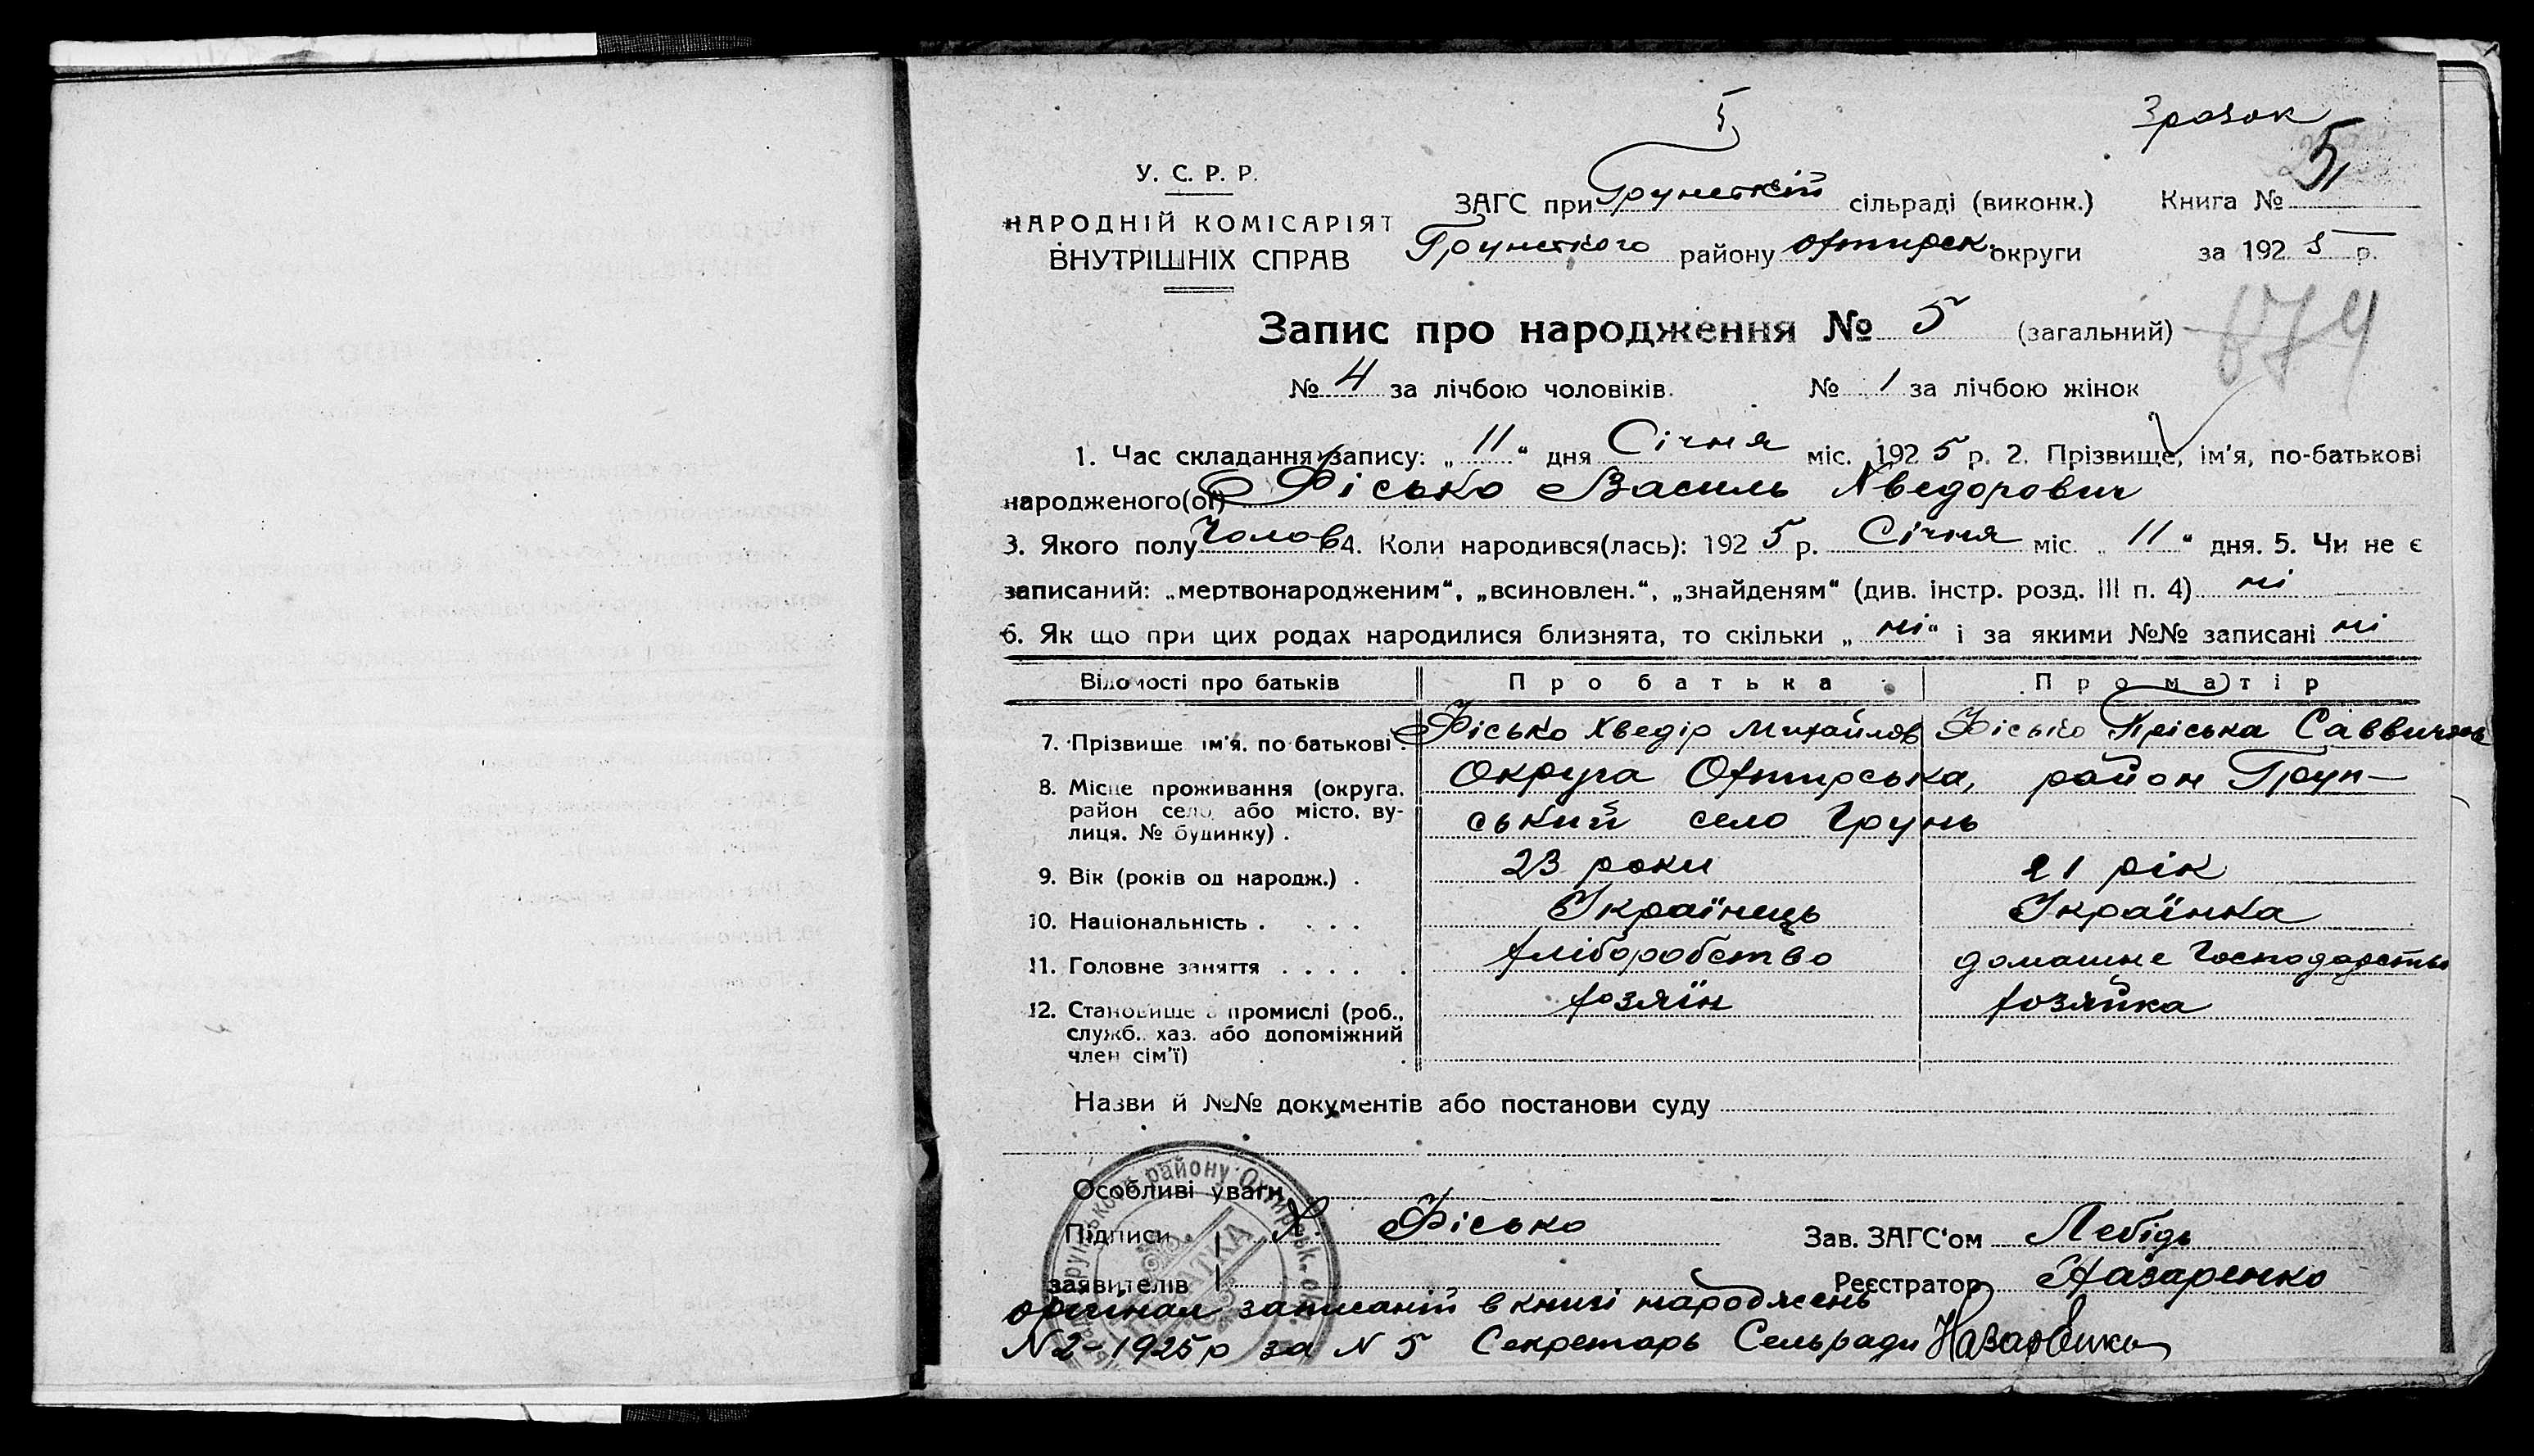 5
Зразок
У. С. Р. Р.
НАРОДНІЙ КОМІСАРІЯТ
ВНУТРІШНІХ СПРАВ
ЗАГС при Грунській сільраді (виконк.) Книга № 5
Грунського району Охтирськ. округи за 1925 р.
Запис про народження № 5 (загальний) 674
№ 4 за лічбою чоловіків. № 1 за лічбою жінок
1. Час складання запису: „ 11 “ дня Січня міс. 1925 р. 2. Прізвище, ім'я, по-батькові
народженого(ої) Фісько Василь Хведорович
3. Якого полу Чолов 4. Коли народився(лась): 1925 р. Січня міс. „ 11 “ дня. 5. Чи не є
записаний: „мертвонародженим“, „всиновлен.“, „знайденям“ (див. інстр. розд. III п. 4) ні
6. Як що при цих родах народилися близнята, то скільки „ ні “ і за якими №№ записані ні
Відомості про батьків Про батька Про матір
7. Прізвище ім'я. по батькові. Фісько Хведір Михайлов Фісько Пріська Саввична
8. Місце проживання (округа, район село або місто, вулиця, № будинку) . Округа Охтирська, район Грун-
ський село Грунь
9. Вік (років од народж.) . 23 роки 21 рік
10. Національність . . . . Українець Українка
11. Головне заняття . . . . . хліборобство домашне Господарство
12. Становище в промислі (роб., служб., хаз. або допоміжний член сім'ї) . . хозяїн хозяйка
Назви й №№ документів або постанови суду
Особливі уваги
Підписи Х. Фісько Зав. ЗАГС'ом Лебідь
заявителів Реєстратор Назаренко
оригінал записаній в книгі народжень
N 2 - 1925 р за N 5 Секретарь Сельради Назаренко
району Охтирськ. ок.